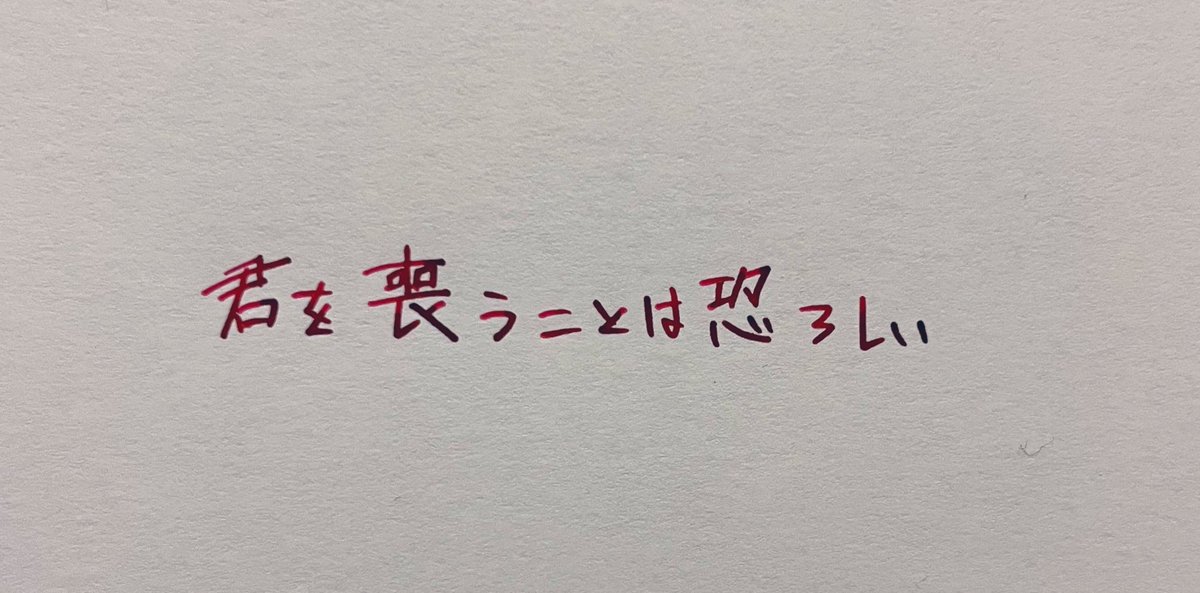 君を喪うことは恐ろしい